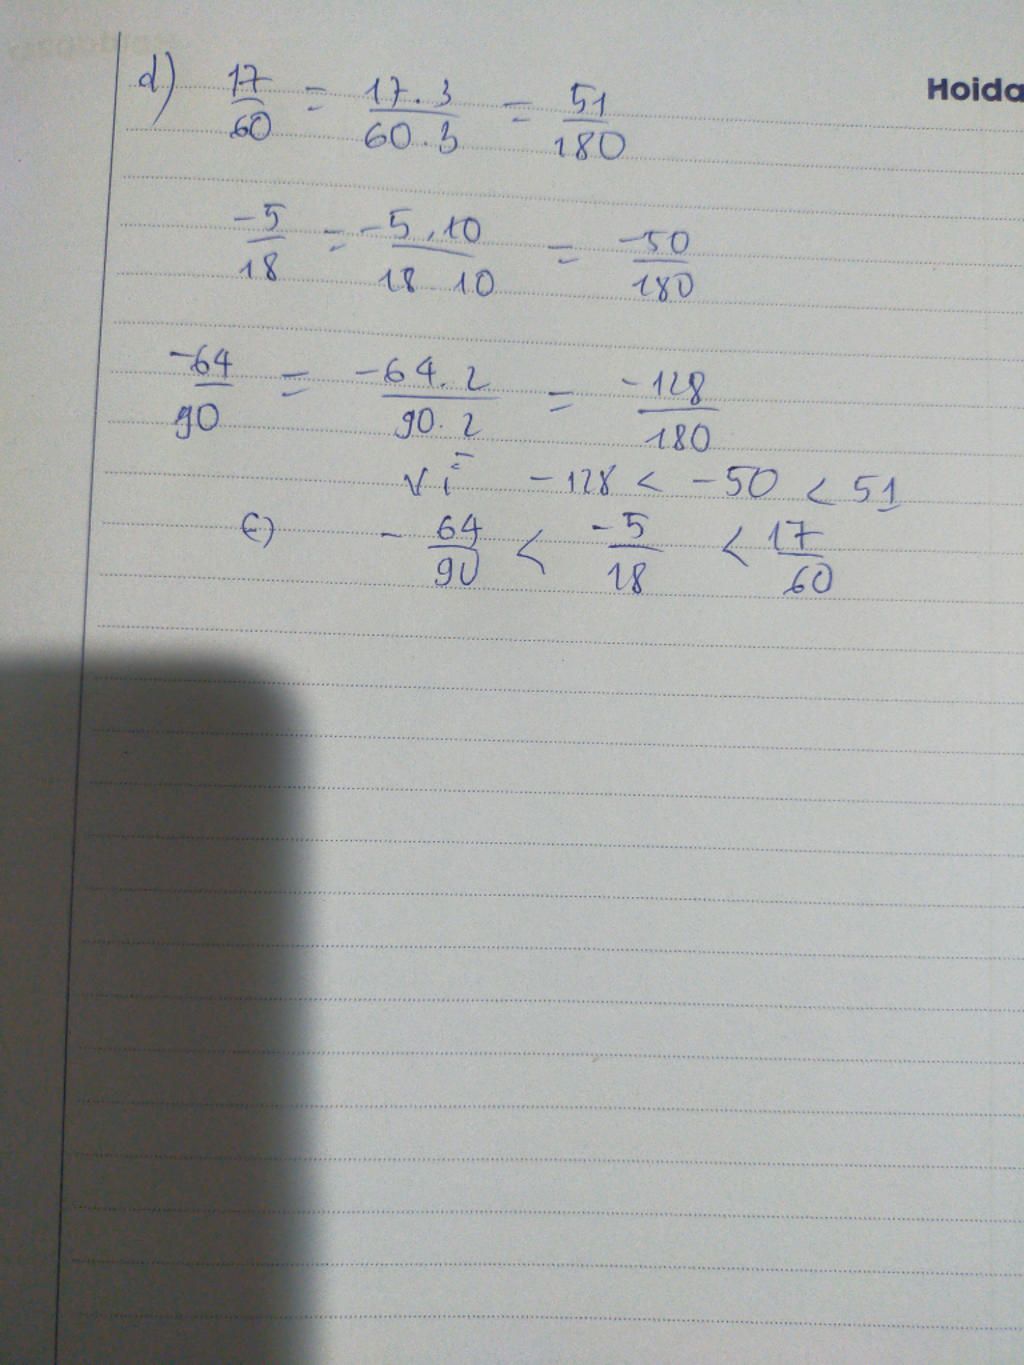 Hoida
d) 17/60 = 17.3/60.3 = 51/180
-5/18 = -5.10/18.10 = -50/180
-64/90 = -64.2/90.2 = -128/180
Vì -128 < -50 < 51
-64/90 < -5/18 < 17/60